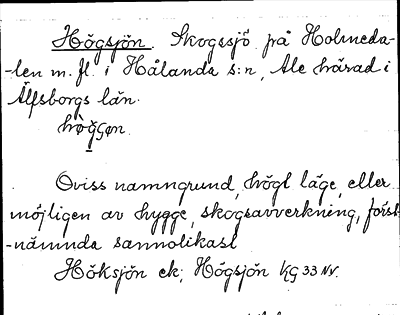 Högsjön. Skogssjö på Holmeda-
-len m. fl. i Hålanda s:n, Ale härad i
Älfsborgs län.
Oviss namngrund, högt läge, eller
möjligen av hygge, skogsavverkning, först
-nämnda sannolikast
Höksjön ek; Högsjön KG 33 NV.